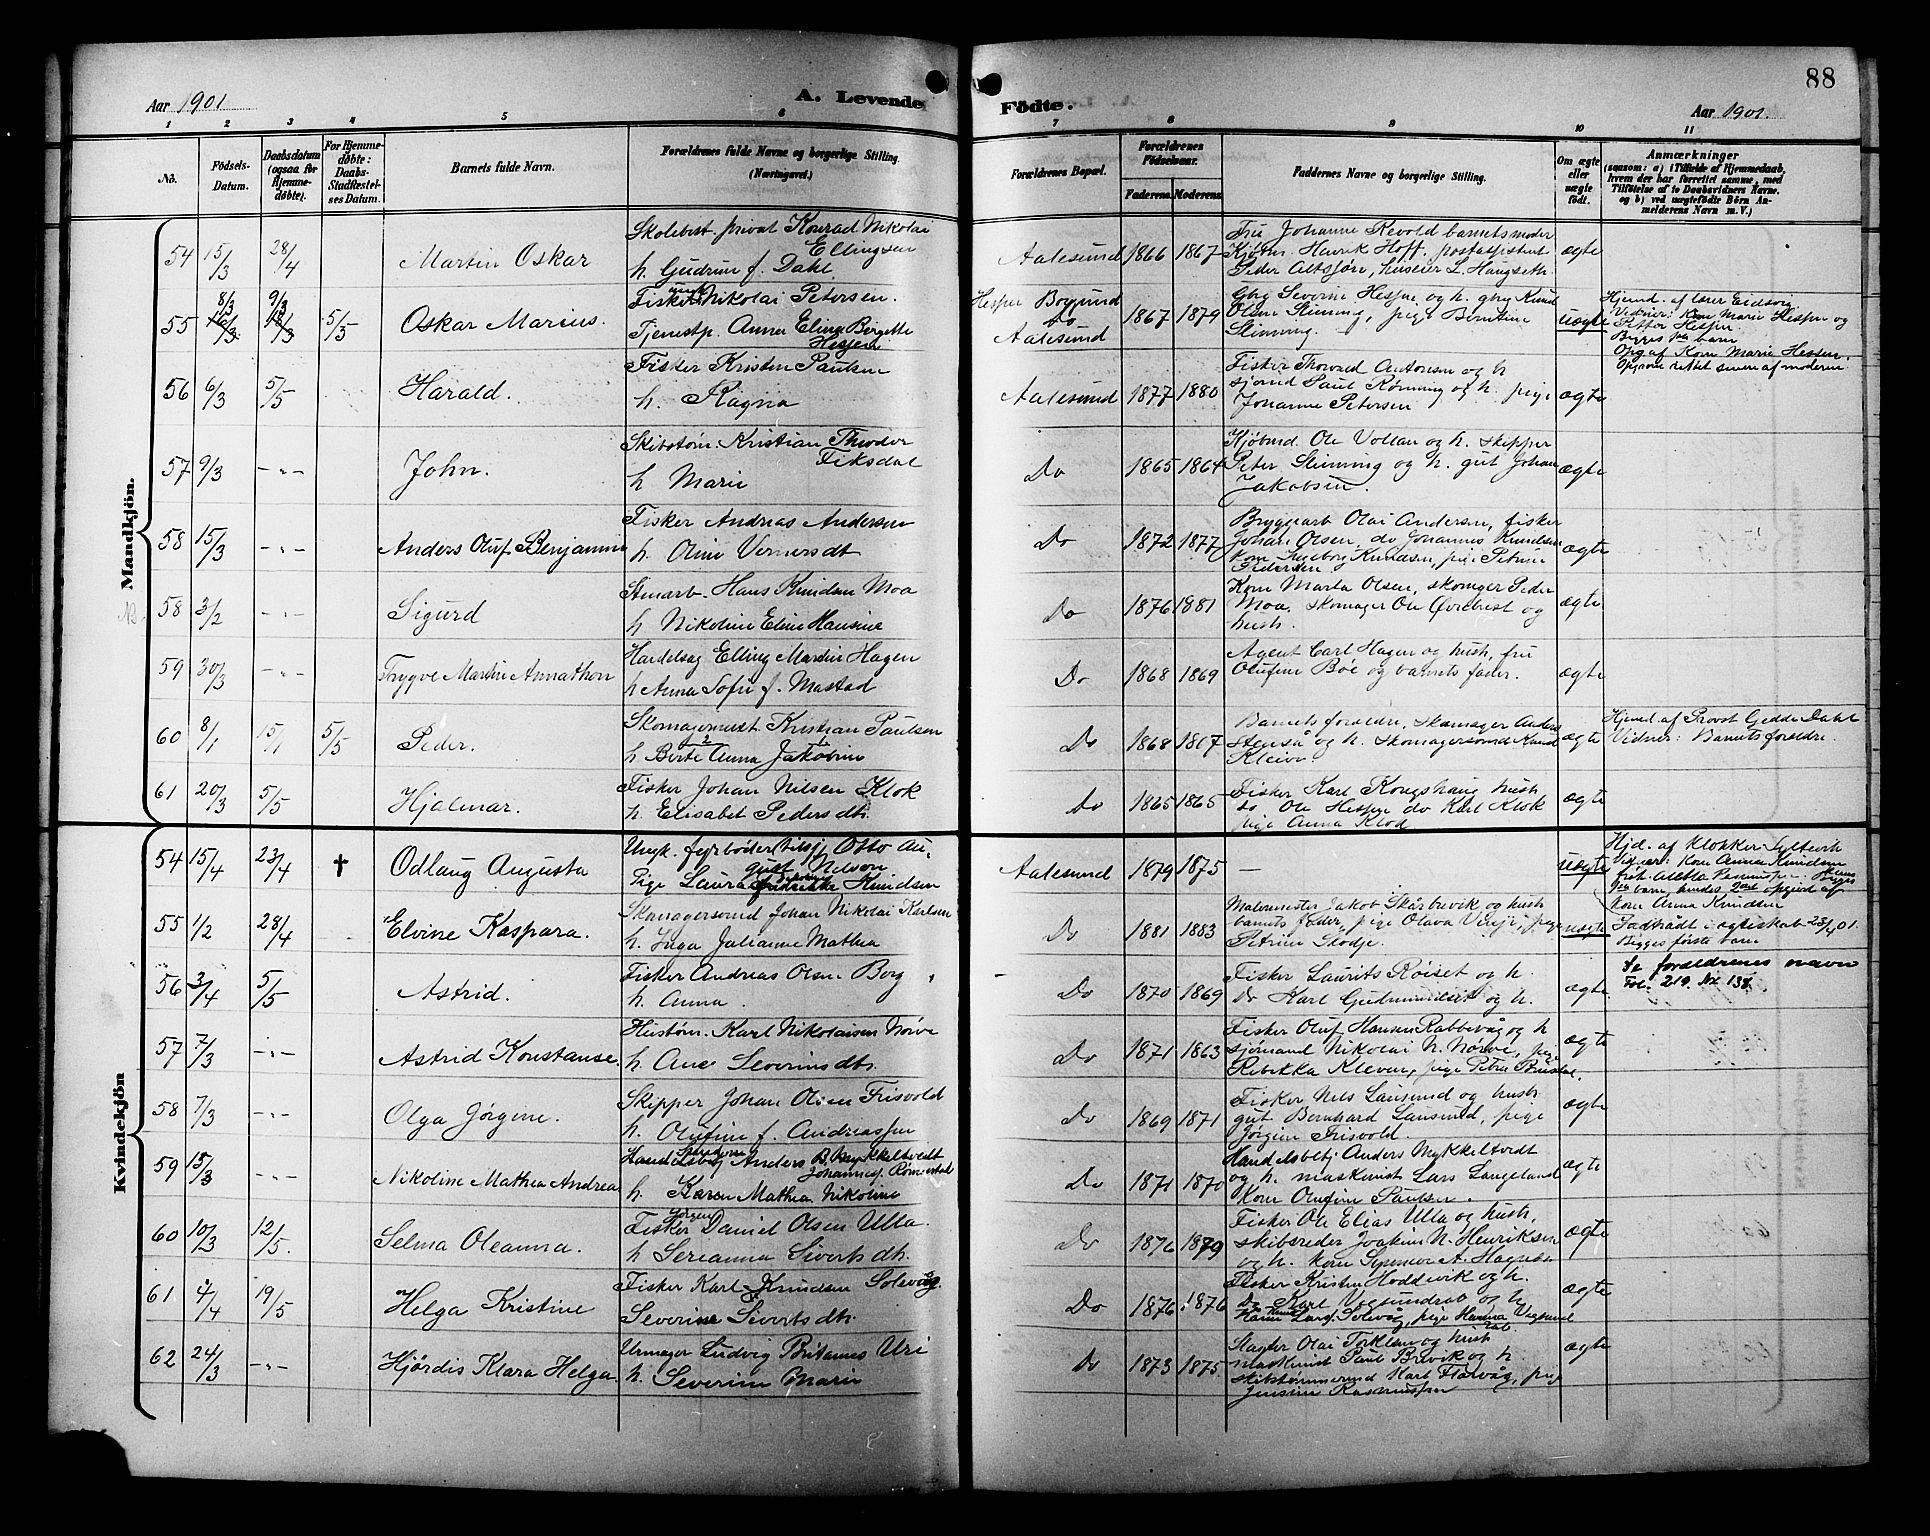 88
Aar 1901
A. Levende
Födte.
Aar 1901.
1 2 3 4 5 6 7 8 9 10 11
No.
Födsels-Datum.
Daabsdatum (ogsaa for Hjemmedøbte).
For Hjemmedøbte: Daabs-Stadfæstelses Datum.
Barnets fulde Navn.
Forældrenes fulde Navne og borgerlige Stilling. (Næringsvei.)
Forældrenes Bopæl.
Forældrenes Födselsaar.
Faderens. Moderens.
Faddernes Navne og borgerlige Stilling.
Om ægte eller uægte födt.
Anmærkninger
(saasom: a) i Tilfælde af Hjemmedaab, hvem der har forrettet samme, med Tilföielse af to Daabsvidners Navne, og b) ved uægtefödte Börn Anmelderens Navn m. V.)
Mandkjön.
54 15/3 28/4 Martin Oskar
Skolebest. privat Konrad Nikolai Ellingsen
h. Gudrun f. Dahl
Aalesund 1866 1867
Fru Johanne Revold barnets moder
Kjøbm. Henrik Hoff, postassistent
Peder Altsjøn, huseier L. Haugseth
ægte
55 8/3 16/3 9/3 18/3 5/3 Oskar Marius.
Fisker ungk Nikolai Petersen.
Tjenestp. Anna Eline Bergitte Hessen
Hessen Borgund
do
Aalesund
1867 1879
Gbr Severin Hessen og h. gbr Knud
Olsen Slinning, pige Berntine
Slinning.
uægte
Hjemd. af lærer Eidsvig
Vidner: Kone Marie Hessen og
Petter Hessen
Begges barn
Opg af Kone Marie Hessen.
Opgavene rettet senere af moderen
56 6/3 5/5 Harald.
Fisker Kristen Paulsen
h. Ragna
Aalesund 1877 1880
Fisker Thorvald Antonsen og h
sjømd Paul Rønning og h. pige
Johanne Petersen
ægte
57 9/3 -"- John.
Skibstøm. Kristian Theodor Fiksdal
h Marie
Do 1865 1864
Kjøbmd. Ole Vollan og h. skipper
Peter Slinning og h. gut Johan
Jakobsen.
ægte
58 15/3 -"- Anders Oluf Benjamin
Fisker Andreas Andersen
h. Oline Vernersdt
Do 1872 1877
Bryggearb Olai Andersen, fisker
Johan Olsen, do Johannes Knudsen
kone Ingeborg Knudsen, pige Petrine
Pedersen
ægte
58 3/2 -"- Sigurd
Stenarb. Hans Knudsen Moa
h. Nikoline Eline Hansine
Do 1876 1881
Kone Marta Olsen, skomager Peder
Moa. Skomager Ole Øvrebust og
hush.
ægte
59 30/3 -"- Trygve Martin Annathon
Handelsag Elling Martin Hagen
h Anna Sofie f. Mastad
Do 1868 1869
Agent Carl Hagen og hush, fru
Olufine Bøe og barnets fader.
ægte
60 8/1 15/1 5/5 Peder.
Skomagermest Kristian Paulsen
h. Berte Anna Jakobine
Do 1868 1867
Barnets foreldre, Skomager Anders
Stenså og h. Skomagersvend Knud
Kleive.
ægte
Hjemd. af Provst Gedde Dahl
Vidner: Barnets foreldre.
61 20/3 5/5 Hjalmar.
Fisker Johan Nilsen Klok
h. Elisabet Pedersdtr.
Do 1865 1865
Fisker Karl Kongshaug hush
do Ole Hessen do Karl Klok
pige Anna Klok
ægte
Kvindekjön
54 15/4 23/4 † Odlaug Augusta
Ungk. fyrbøder Otto August Nelson
Pige Laura Fredrikke Knudsen
Aalesund 1879 1875 —
uægte
Hjd. af klokker Syltevik
Vidner: Kone Anna Knudsen
barn, hendes opgivet af
Kone Anna Knudsen
55 1/2 28/4 Elvine Kaspara.
Skomagersvend Johan Nikolai Karlsen
h. Inga Julianne Mathea
Do 1881 1883
Malermester Jakob Skårbrevik og hush
barnets fader, pige Olava Vinje, pige
Petrine Stodje.
uægte
Indtrådt i ægteskab 23/4 01.
Begges første barn
56 3/4 5/5 Astrid.
Fisker Andreas Olsen Berg
h. Anna
Do 1870 1869
Fisker Laurits Røiset og h.
do Karl Gudmundset og h.
ægte
Se foreldrenes navn
Fol. 219. No 138.
57 7/3 -"- Astrid Konstanse
Hustøm. Karl Nikolaisen Nørve
h. Ane Severinsdtr.
Do 1871 1863
Fisker Oluf Hansen Rabbevåg og h
sjømand Nikolai N. Nørve, pige
Rebekka Kleven, pige Petra
ægte
58 7/3 -"- Olga Jørgine.
Skipper Johan Olsen Frisvold
h. Olufine f. Andreassen
Do 1869 1871
Fisker Nels Lausund og hush
gut Bernhard Lausund, pige
Jørgine Frisvold.
ægte
59 15/3 -"- Nikoline Mathea Andrea
Handelsbetj Anders B. Mykkeltvedt
h. Karen Mathea Nikoline
Do 1871 1870
Handelsbetj. Anders Mykkeltvedt
og h. maskinist Lars Langeland
Kone Olufine Paulsen.
ægte
60 10/3 12/5. Selma Oleanna.
Fisker Jørgen Daniel Olsen Ulla.
h Serianna Sivertsdtr.
Do 1876 1879
Fisker Ole Elias Ulla og hush,
skibsreder Joakim N. Henriksen
og h.
ægte
61 4/4 19/5 Helga Kristine
Fisker Karl Knudsen Solevåg.
Severine Sivertsdtr.
Do 1876 1876
Fisker Kristen Hoddevik og h.
do Karl Vegsundsæt og h
pige Hanna Vegsund
ægte
62 24/3 -"- Hjørdis Klara Helga.
Urmager Ludvig Britanus Uri
h. Severine Marie
Do 1873 1875
Slagter Olai Torklsen og hush
maskinist Paul Brevik og h
skibstømmermd Karl Flatvåg, pige
Jensine Rasmussen
ægte